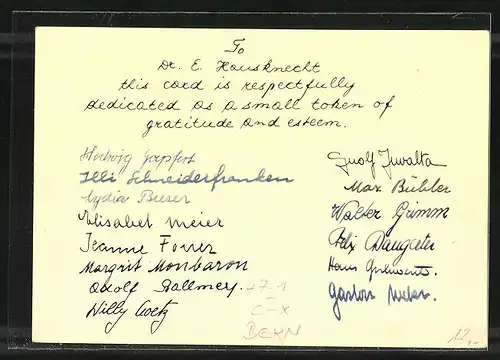 To
Dr. E. Hausknecht
this card is respectfully
dedicated as a small token of
gratitude and esteem.
Hedwig
Illi Schneiderfranken
Lydia Buser
Elisabet Meier
Jeanne Forrer
Margrit Monbaron
Adolf Ballmer.
Willy Goetz
Gusolf Juvalta
Max Bühler
Walter Grimm
Felix Daugeter
Hans
Gaston Weber.
+7-1
C-X
BERN
12,-